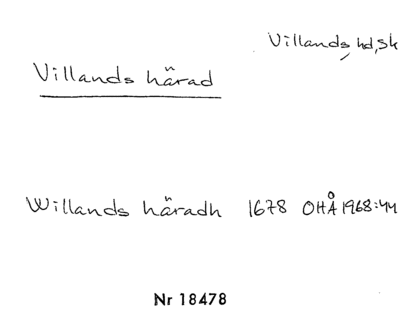 Villands, hd, Sk
Villands härad
Willands häradh 1678 OHÅ 1968:44
Nr 18478